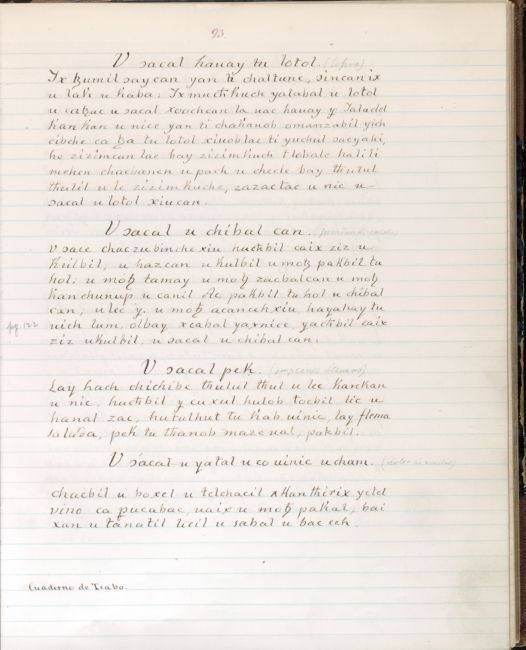 93.
V sacal hauay tu lotol. (lepra)
Ix ꜩumil saycan yan ti chaltune, sincan ix
u lak u kaba: Ix muchkuch yalabal u lotol
u caꜩuc u sacal xoochcan la uac hauay y
kankan u nicc yan ti chakanob omanzabil yich
cibche ca ꜩa tu lotol xiuoblae ti yuchul sacyaki,
he zizimcan lae bay zizimkuch tlobale halili
mehen chacbanen u pach u checle bay thulul
thulil u le zizimkuche, zazactac u nic u
sacal u lotol xiucan.
V sacal u chibal can.
V sace chaczubinche xiu huchbil caix ziz u
Kuilbil, u hazcan u kulbil u moꜩ pakbil tu
hol, u moꜩ tamay u moꜩ zacbalcan u moꜩ
kanchunup, u canil Ac pakbil tu hol u chibal
can; u lec y. u moꜩ acancehxiu, hayabay tu
pg. 122 uich lum. olbay xcabal yaxnice, yachbil caix
ziz ukulbil, u sacal u chibal can.
V sacal pek.
Lay hach chichibe thulul thul u lee kankan
u nic, huchbil y cuxul hulob tocbil lic u
hanal zac, hutulhut tu kab uinic, lay flema
salada, pek tu thanob mazeual, pakbil.
V sacal u yatal u co uinic ucham.
chacbil u boxel u telchacil x kanthirix yetel
vino ca pucabac, uaix u moꜩ pakal, bai
xan u tanatil licil u sabal u bac ceh.
Cuaderno de Teabo.